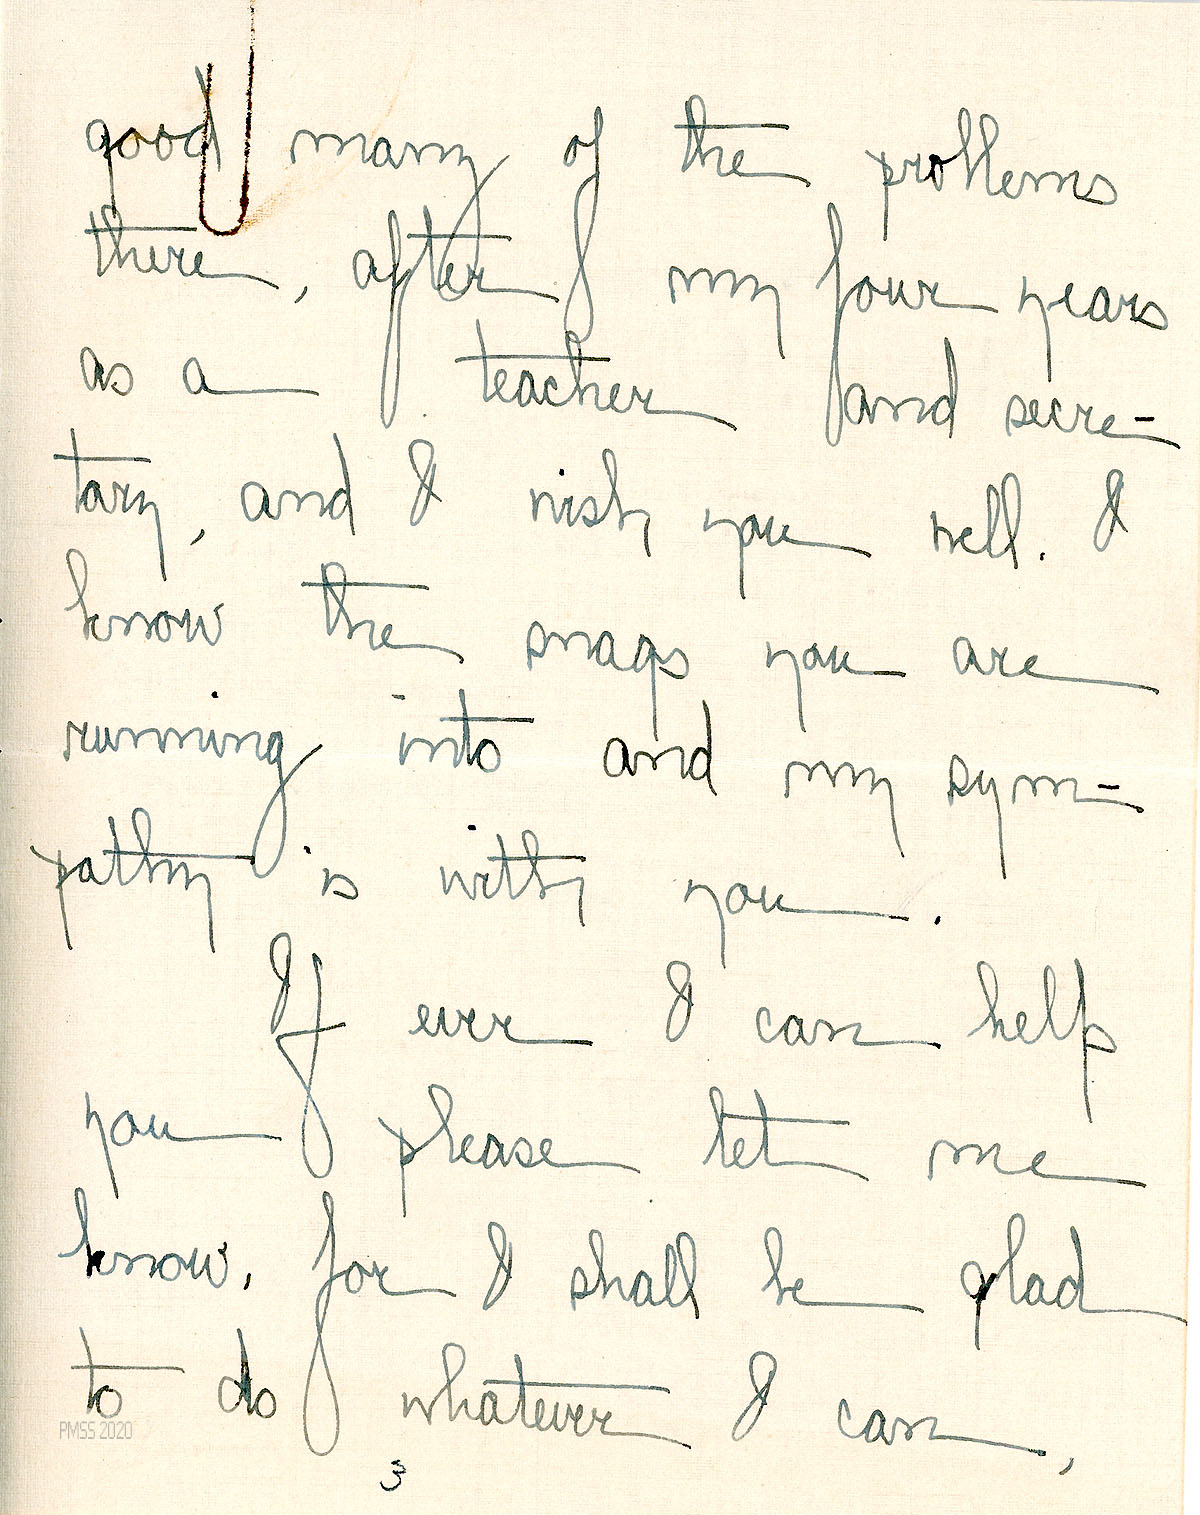 good many of the problems
there, after my four years
as a teacher and secre-
tary, and I wish you well. I
know the snags you are
running into and my sym-
pathy is with you.
If ever I can help
you please let me
know, for I shall be glad
to do whatever I can,
PMSS 2020
3